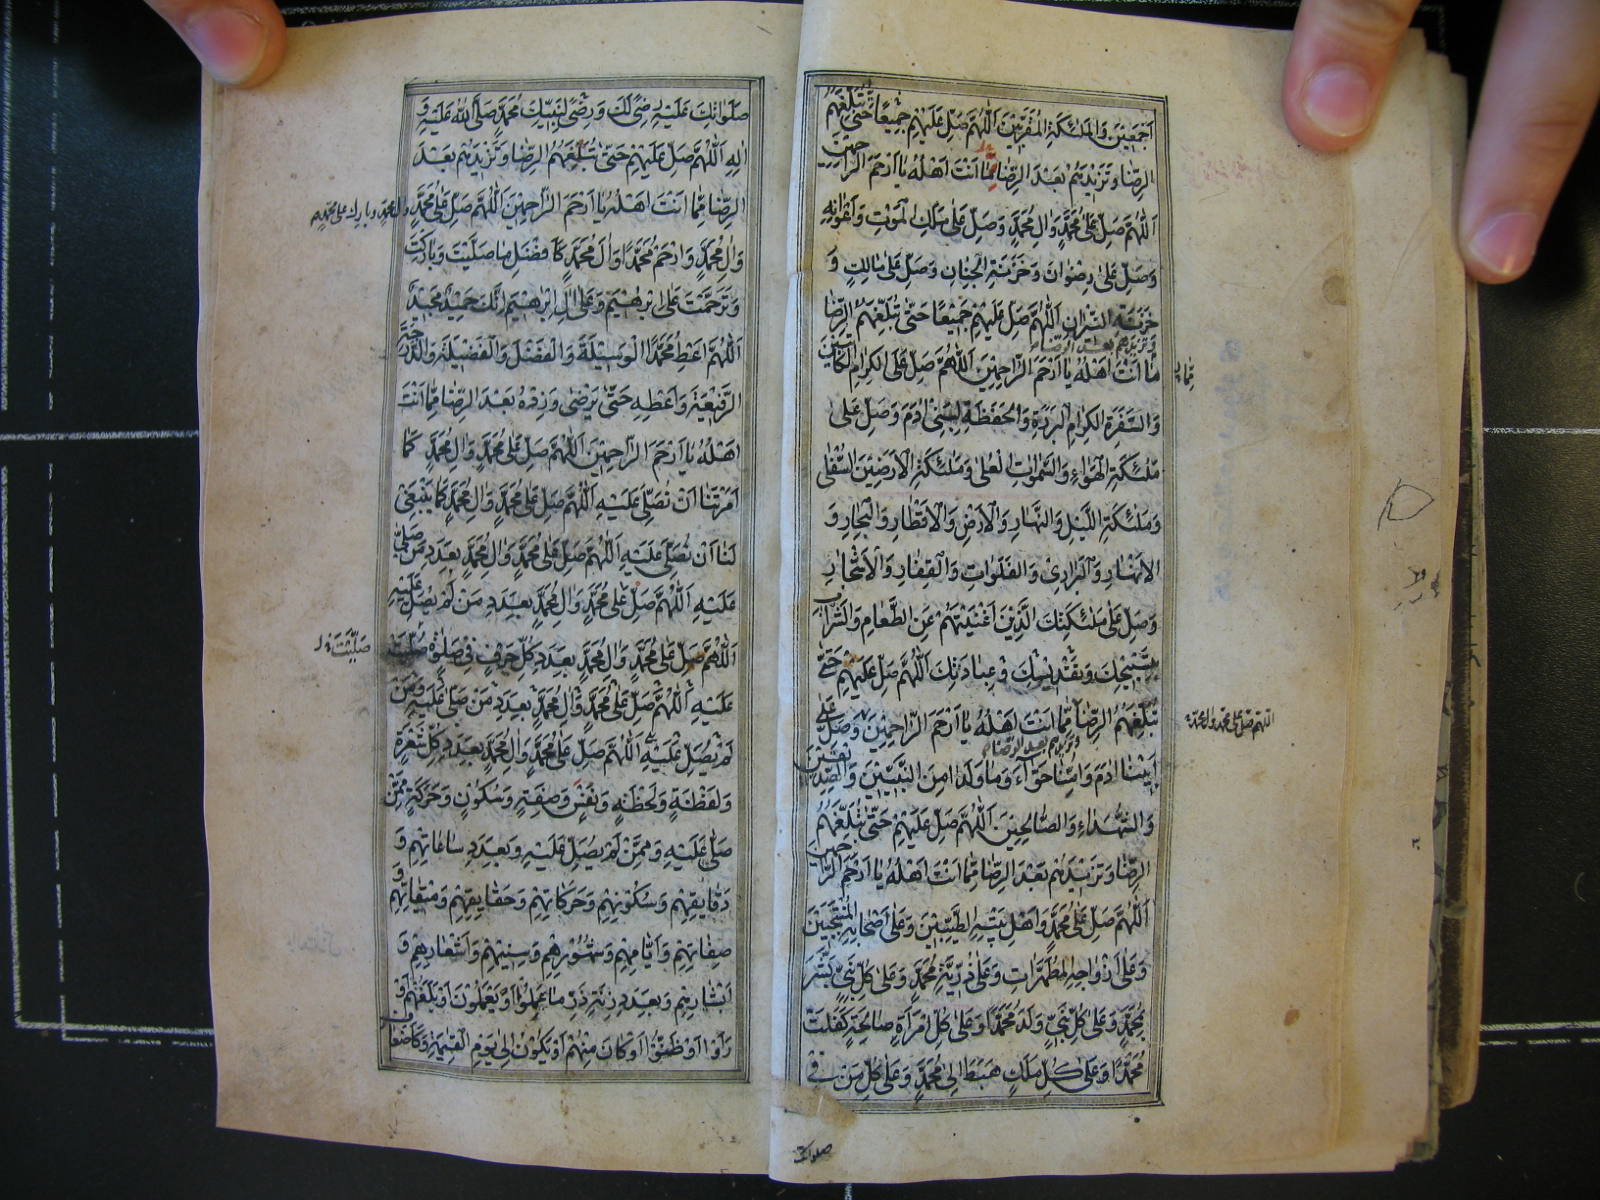 اَجْمَعِيْنَ وَالْمَلٰئِكَةِ الْمُقَرَّبِيْنَ اَللّٰهُمَّ صَلِّ عَلَيْهِمْ جَمِيْعًا حَتّٰى تُبَلِّغَهُمُ
الرِّضَا وَتَزِيْدَهُمْ بَعْدَ الرِّضَا مِمَّا اَنْتَ اَهْلُهُ يَا اَرْحَمَ الرَّاحِمِيْنَ
اَللّٰهُمَّ صَلِّ عَلٰى مُحَمَّدٍ وَاٰلِ مُحَمَّدٍ وَصَلِّ عَلٰى مَلَكِ الْمَوْتِ وَاَعْوَانِهِ
وَصَلِّ عَلٰى رِضْوَانَ وَخَزَنَةِ الْجِنَانِ وَصَلِّ عَلٰى مَالِكٍ وَ
خَزَنَةِ النِّيْرَانِ اَللّٰهُمَّ صَلِّ عَلَيْهِمْ جَمِيْعًا حَتّٰى تُبَلِّغَهُمُ الرِّضَا
وتزيدهم بعد الرضا
مَا اَنْتَ اَهْلُهُ يَا اَرْحَمَ الرَّاحِمِيْنَ اَللّٰهُمَّ صَلِّ عَلَى الْكِرَامِ الْكَاتِبِيْنَ
مِمَّا
وَالسَّفَرَةِ الْكِرَامِ الْبَرَرَةِ وَالْحَفَظَةِ لِبَنِيْ اٰدَمَ وَصَلِّ عَلٰى
مَلٰئِكَةِ الْهَوَاءِ وَالسَّمٰوَاتِ الْعُلٰى وَمَلٰئِكَةِ الْاَرَضِيْنَ السُّفْلٰى
وَمَلٰئِكَةِ اللَّيْلِ وَالنَّهَارِ وَالْاَرْضِ وَالْاَقْطَارِ وَالْبِحَارِ وَ
الْاَنْهَارِ وَالْبَرَارِيْ وَالْفَلَوَاتِ وَالْقِفَارِ وَالْاَشْجَارِ
وَصَلِّ عَلٰى مَلٰئِكَتِكَ الَّذِيْنَ اَغْنَيْتَهُمْ عَنِ الطَّعَامِ وَالشَّرَابِ
بِتَسْبِيْحِكَ وَتَقْدِيْسِكَ وَعِبَادَتِكَ اَللّٰهُمَّ صَلِّ عَلَيْهِمْ حَتّٰى
تُبَلِّغَهُمُ الرِّضَا مِمَّا اَنْتَ اَهْلُهُ يَا اَرْحَمَ الرَّاحِمِيْنَ وَصَلِّ عَلٰى
اللهم صل على محمد وال محمد
وتزيدهم بعد الرضا
اَبِيْنَا اٰدَمَ وَاُمِّنَا حَوَّاءَ وَمَا وَلَدَا مِنَ النَّبِيِّيْنَ وَالصِّدِّيْقِيْنَ
وَالشُّهَدَاءِ وَالصَّالِحِيْنَ اَللّٰهُمَّ صَلِّ عَلَيْهِمْ حَتّٰى تُبَلِّغَهُمُ
الرِّضَا وَتَزِيْدَهُمْ بَعْدَ الرِّضَا مِمَّا اَنْتَ اَهْلُهُ يَا اَرْحَمَ الرَّاحِمِيْنَ
اَللّٰهُمَّ صَلِّ عَلٰى مُحَمَّدٍ وَاَهْلِ بَيْتِهِ الطَّيِّبِيْنَ وَعَلٰى اَصْحَابِهِ الْمُنْتَجَبِيْنَ
وَعَلٰى اَزْوَاجِهِ الْمُطَهَّرَاتِ وَعَلٰى ذُرِّيَّةِ مُحَمَّدٍ وَعَلٰى كُلِّ نَبِيٍّ بَشَّرَ
بِمُحَمَّدٍ وَعَلٰى كُلِّ نَبِيٍّ وَلَدَ مُحَمَّدًا وَعَلٰى كُلِّ امْرَاَةٍ صَالِحَةٍ كَفَلَتْ
مُحَمَّدًا وَعَلٰى كُلِّ مَلَكٍ هَبَطَ اِلٰى مُحَمَّدٍ وَعَلٰى كُلِّ مَنْ فِيْ
صلواتك
صَلَوَاتِكَ عَلَيْهِ رِضًى لَكَ وَرِضًى لِنَبِيِّكَ مُحَمَّدٍ صَلَّى اللهُ عَلَيْهِ وَ
اٰلِهِ اَللّٰهُمَّ صَلِّ عَلَيْهِمْ حَتّٰى تُبَلِّغَهُمُ الرِّضَا وَتَزِيْدَهُمْ بَعْدَ
الرِّضَا مِمَّا اَنْتَ اَهْلُهُ يَا اَرْحَمَ الرَّاحِمِيْنَ اَللّٰهُمَّ صَلِّ عَلٰى مُحَمَّدٍ
وال محمد وبارك على محمد
وَاٰلِ مُحَمَّدٍ وَارْحَمْ مُحَمَّدًا وَاٰلَ مُحَمَّدٍ كَاَفْضَلِ مَا صَلَّيْتَ وَبَارَكْتَ
وَتَرَحَّمْتَ عَلٰى اِبْرٰهِيْمَ وَعَلٰى اٰلِ اِبْرٰهِيْمَ اِنَّكَ حَمِيْدٌ مَجِيْدٌ
اَللّٰهُمَّ اَعْطِ مُحَمَّدًا الْوَسِيْلَةَ وَالْفَضْلَ وَالْفَضِيْلَةَ وَالدَّرَجَةَ
الرَّفِيْعَةَ وَاَعْطِهِ حَتّٰى يَرْضٰى وَزِدْهُ بَعْدَ الرِّضَا مِمَّا اَنْتَ
اَهْلُهُ يَا اَرْحَمَ الرَّاحِمِيْنَ اَللّٰهُمَّ صَلِّ عَلٰى مُحَمَّدٍ وَاٰلِ مُحَمَّدٍ كَمَا
اَمَرْتَنَا اَنْ نُصَلِّيَ عَلَيْهِ اَللّٰهُمَّ صَلِّ عَلٰى مُحَمَّدٍ وَاٰلِ مُحَمَّدٍ كَمَا يَنْبَغِيْ
لَنَا اَنْ نُصَلِّيَ عَلَيْهِ اَللّٰهُمَّ صَلِّ عَلٰى مُحَمَّدٍ وَاٰلِ مُحَمَّدٍ بِعَدَدِ مَنْ صَلّٰى
عَلَيْهِ اَللّٰهُمَّ صَلِّ عَلٰى مُحَمَّدٍ وَاٰلِ مُحَمَّدٍ بِعَدَدِ مَنْ لَمْ يُصَلِّ عَلَيْهِ
اَللّٰهُمَّ صَلِّ عَلٰى مُحَمَّدٍ وَاٰلِ مُحَمَّدٍ بِعَدَدِ كُلِّ حَرْفٍ فِيْ صَلٰوةٍ صُلِّيَتْ
صَلَّيْتَ
عَلَيْهِ اَللّٰهُمَّ صَلِّ عَلٰى مُحَمَّدٍ وَاٰلِ مُحَمَّدٍ بِعَدَدِ مَنْ صَلّٰى عَلَيْهِ وَمَنْ
لَمْ يُصَلِّ عَلَيْهِ اَللّٰهُمَّ صَلِّ عَلٰى مُحَمَّدٍ وَاٰلِ مُحَمَّدٍ بِعَدَدِ كُلِّ شَعْرَةٍ
وَلَفْظَةٍ وَلَحْظَةٍ وَنَفَسٍ وَصِفَةٍ وَسُكُوْنٍ وَحَرَكَةٍ مِمَّنْ
صَلّٰى عَلَيْهِ وَمِمَّنْ لَمْ يُصَلِّ عَلَيْهِ وَبِعَدَدِ سَاعَاتِهِمْ وَ
دَقَايِقِهِمْ وَسُكُوْنِهِمْ وَحَرَكَاتِهِمْ وَحَقَايِقِهِمْ وَمِيْقَاتِهِمْ وَ
صِفَاتِهِمْ وَاَيَّامِهِمْ وَشُهُوْرِهِمْ وَسِنِيْهِمْ وَاَشْعَارِهِمْ وَ
اَبْشَارِهِمْ وَبِعَدَدِ زِنَةِ ذَرِّ مَا عَمِلُوْا اَوْ يَعْمَلُوْنَ اَوْ بَلَغَهُمْ اَوْ
رَاَوْا اَوْ ظَنُّوْا اَوْ كَانَ مِنْهُمْ اَوْ يَكُوْنُ اِلٰى يَوْمِ الْقِيٰمَةِ وَكَاَضْعَافِ